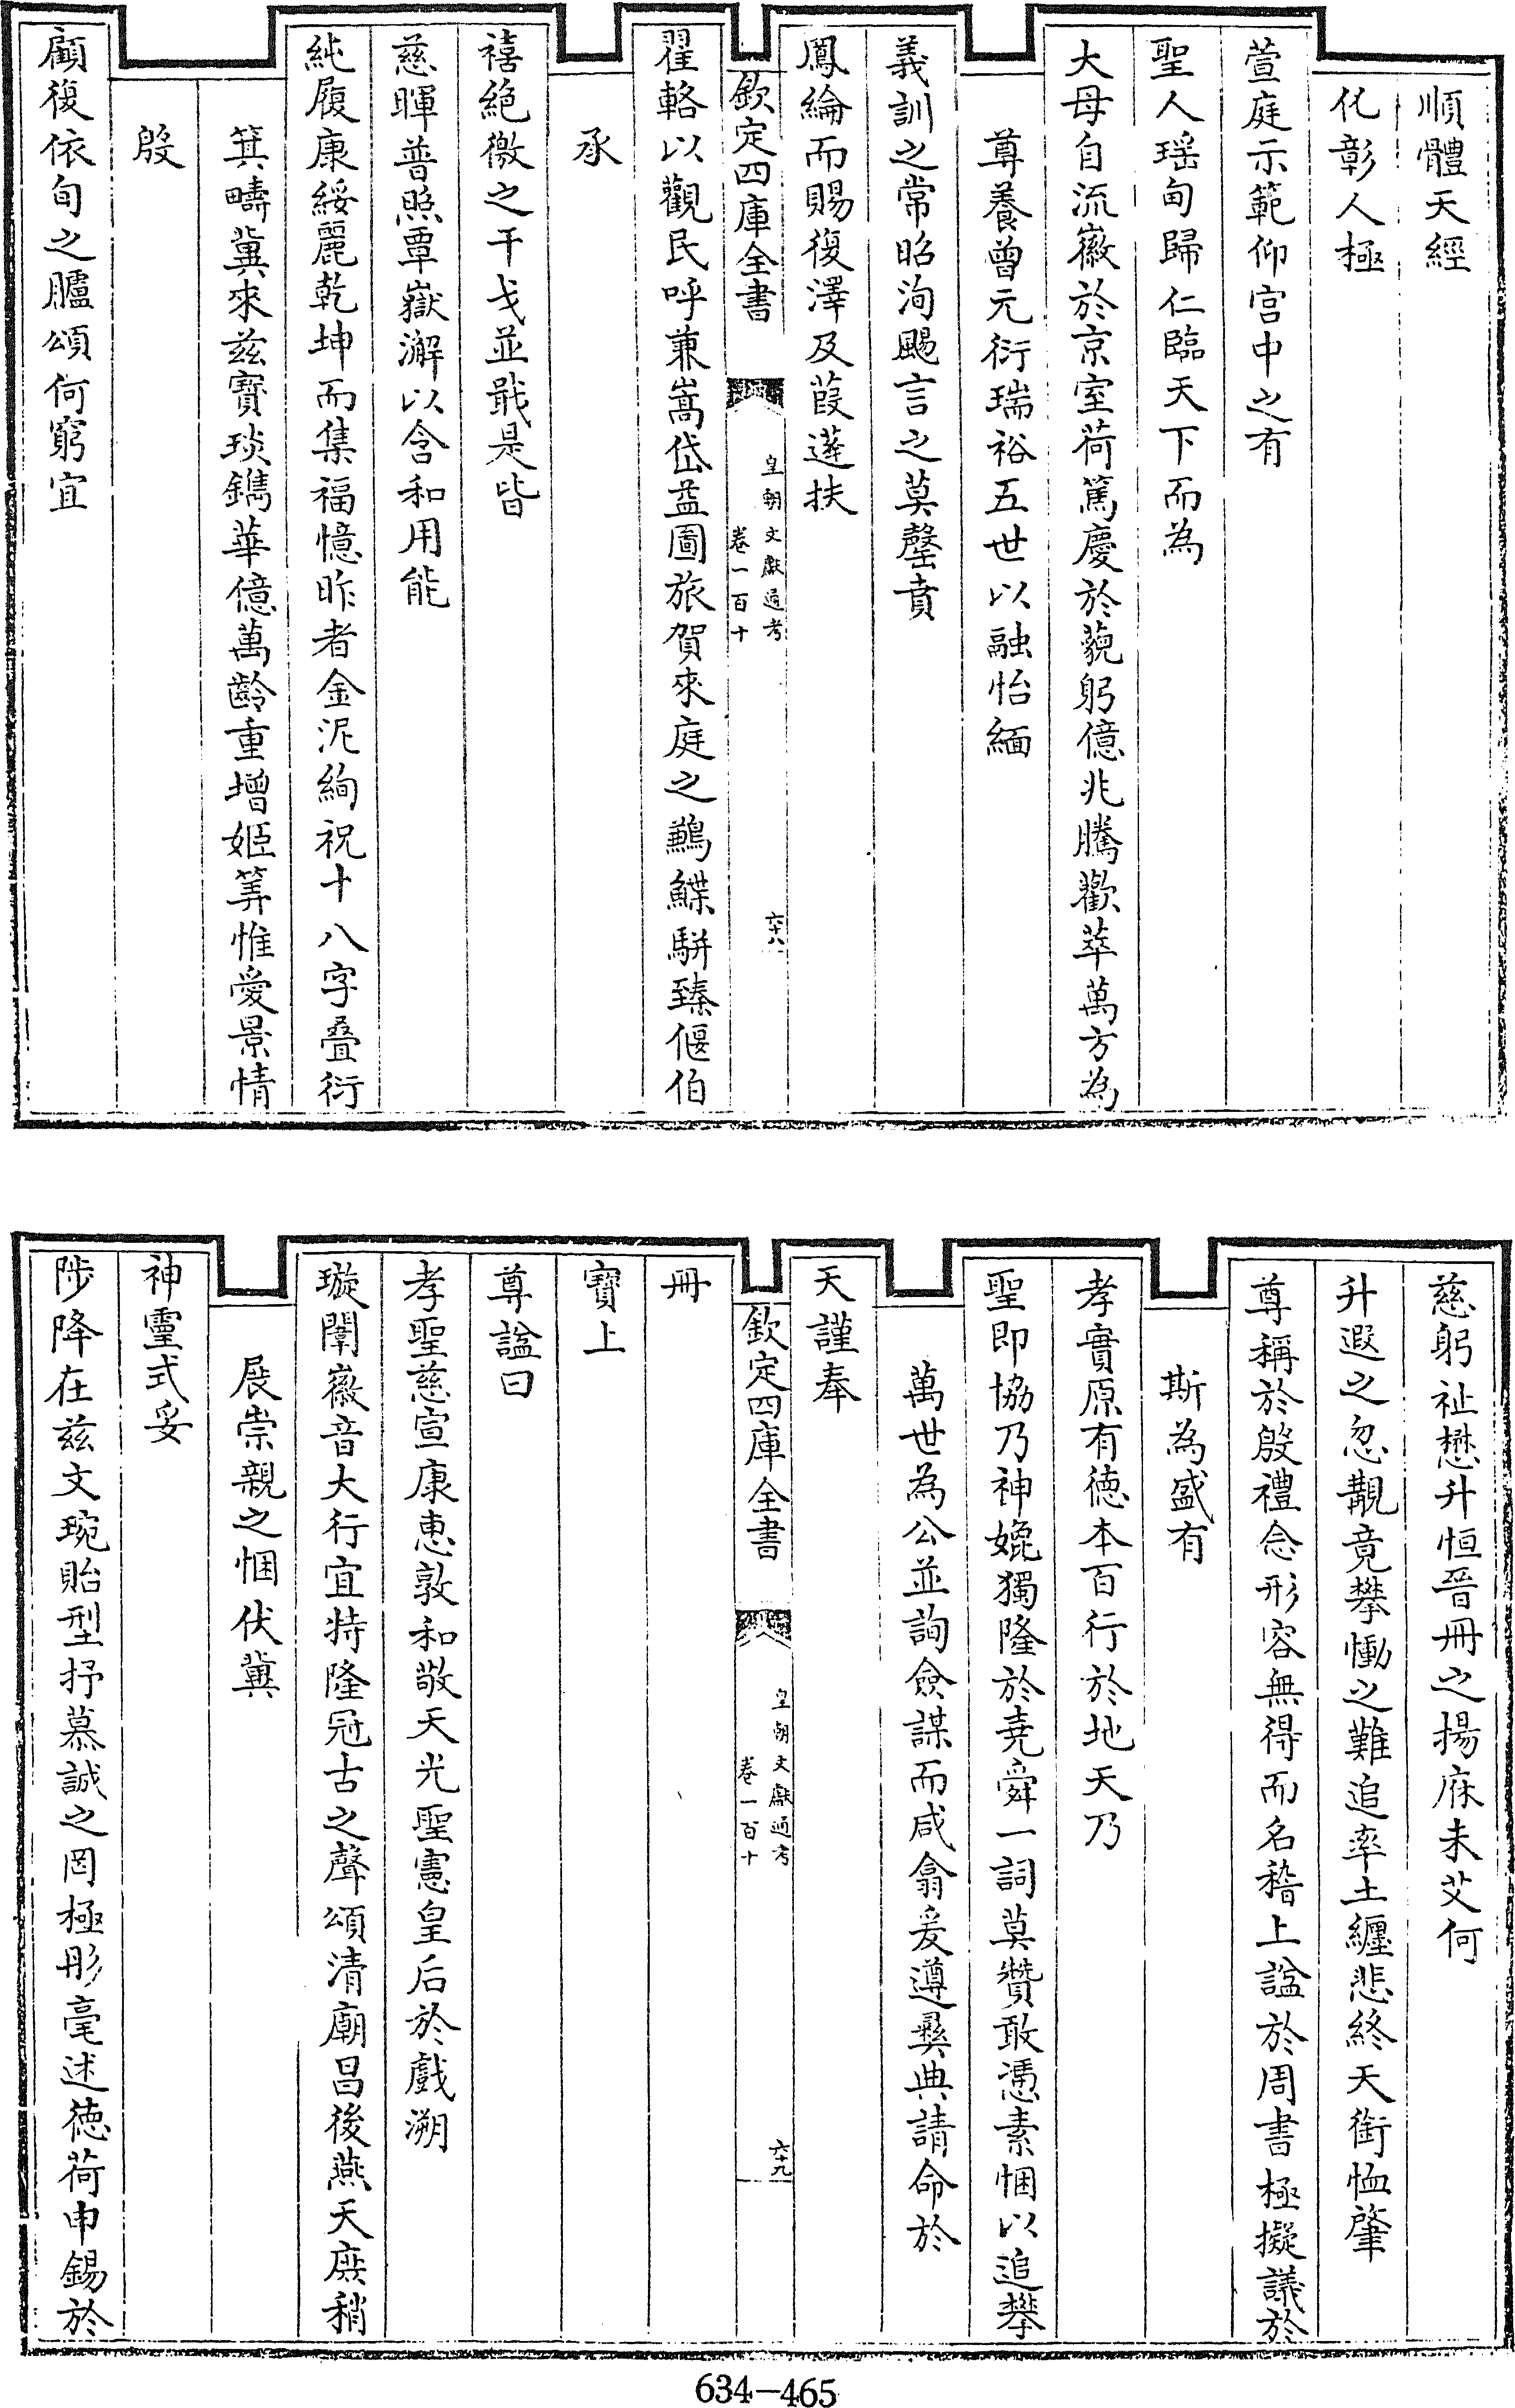 順體天經
化彰人極
萱庭示範仰宫中之有
聖人瑶甸歸仁臨天下而為
大母自流徽於京室荷篤慶於藐躬億兆騰歡萃萬方為
尊養曾元衍瑞裕五世以融怡緬
義訓之常昭洵颺言之莫罄賁
鳳綸而賜復澤及葭蓬扶
欽定四庫全書
皇朝文獻通考
卷一百十
六十八
翟輅以觀民呼兼嵩岱益圖旅賀來庭之鶼鰈駢臻偃伯
承
禧絶徼之干戈並戢是皆
慈暉普照覃嶽澥以含和用能
純履康綏麗乾坤而集福憶昨者金泥絢祝十八字叠衍
箕疇冀來兹寳琰鐫華億萬齡重增姬筭惟愛景情
殷
顧復依旬之臚頌何窮宜
慈躬祉懋升恒晉冊之揚庥未艾何
升遐之忽覯竟攀慟之難追率土纏悲終天銜恤肇
尊稱於殷禮念形容無得而名稽上諡於周書極擬議於
斯為盛有
孝實原有徳本百行於地天乃
聖即協乃神媲獨隆於堯舜一詞莫贊敢慿素悃以追攀
萬世為公並詢僉謀而咸翕爰遵彞典請命於
天謹奉
欽定四庫全書
皇朝文獻通考
卷一百十
六十九
冊
寳上
尊諡曰
孝聖慈宣康惠敦和敬天光聖憲皇后於戲溯
璇闈徽音大行宜特隆冠古之聲頌清廟昌後燕天庶稍
展崇親之悃伏冀
神靈式妥
陟降在兹文琬貽型抒慕誠之罔極彤毫述徳荷申錫於
634-465